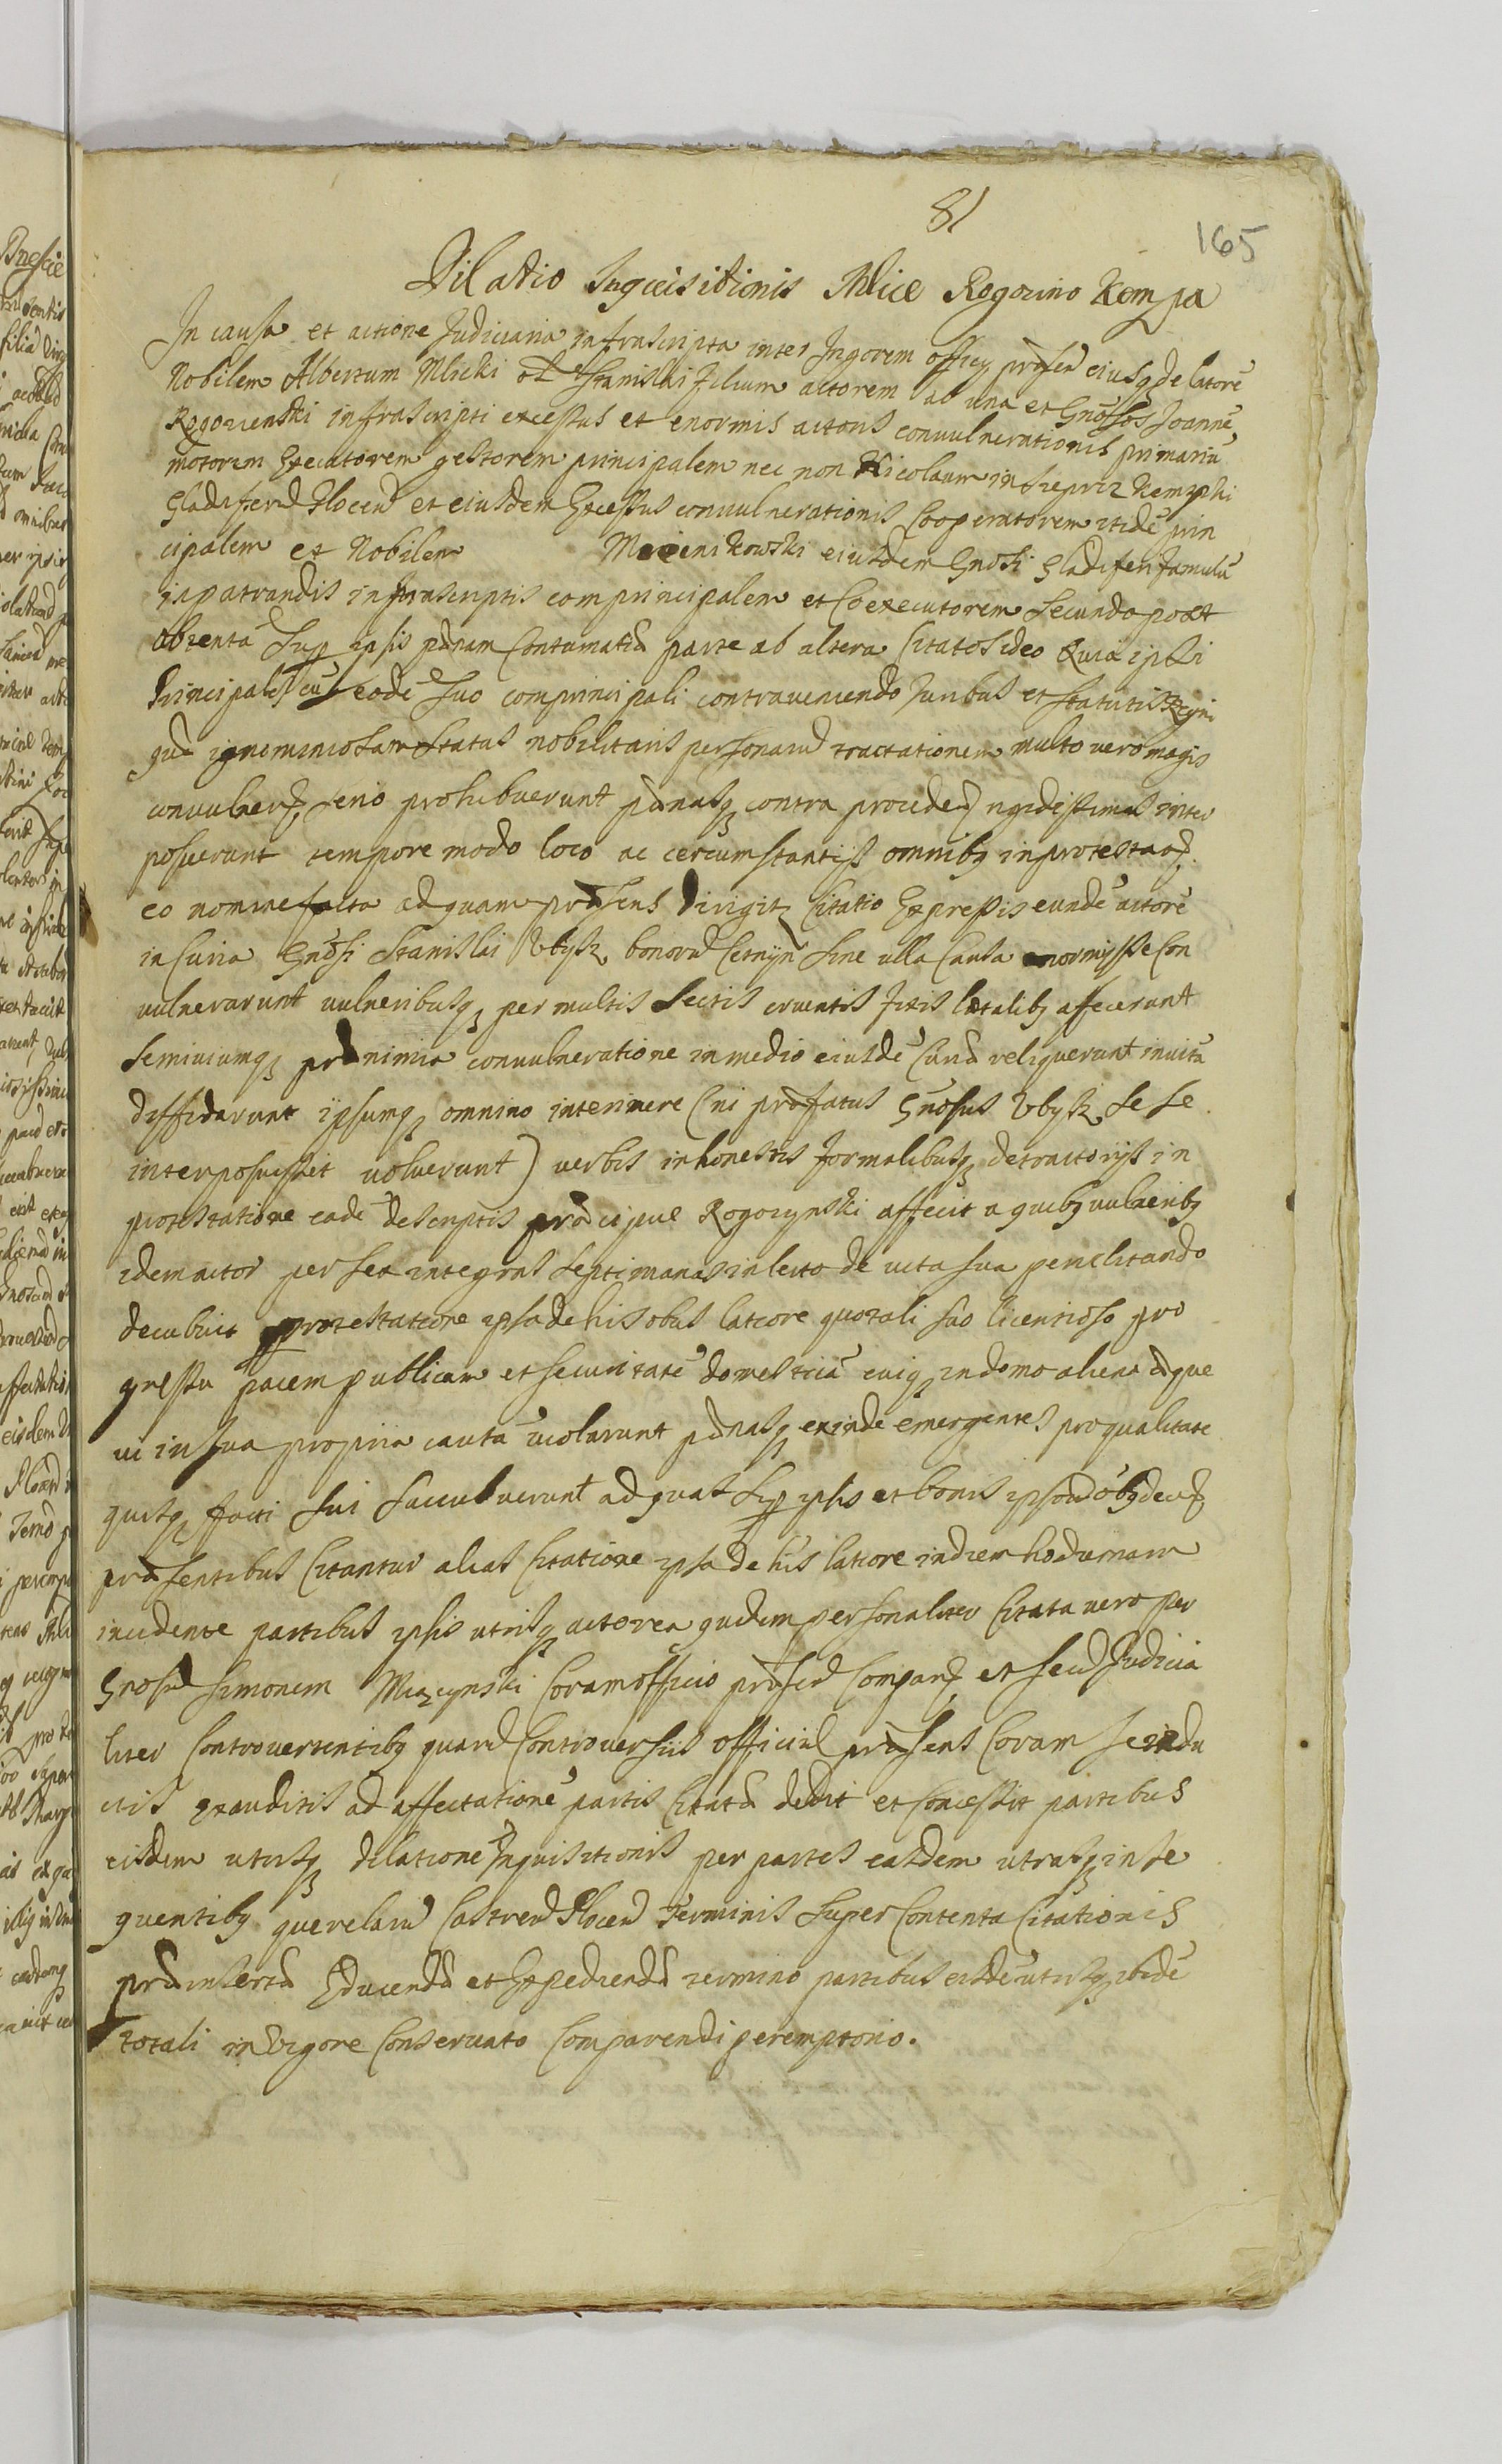 81
165
Dilatio Inquisitionis Mlice Rogozino Kempa
In causa et actione Judiciaria infrascripta inter Ingorem officy præsen eiusq delatorē
Nobilem Albertum Mlicki ol Stanislai filium actorem ab una et Gnosos Joannē
Rogozienski infrascripti excessus et enormis actoris convulnerationis primariū
motorem Executorem gestorem principalem nec non Nicolaum Kempski
Gladiferū Plocen et eiusdem Excessus convulnerationis Cooperatorem itidē prin
cipalem et Nobilem Mocinikowski eiusdem Gnosi Gladiferi famulū
in patrandis infrascriptis comprincipalem et Coexecutorem secundo post
obtentā sup ipsis pænam Contumatiæ parte ab altera Citatos ideo Quia ipsi
Principales cū eodē suo comprincipali contraveniendo Juribus et statutis Regni
quæ ignominiosam status nobilitaris personarū tractationem multo vero magis
convulner serio prohibuerunt pænasq contra proceden rigidissimas inter
posuerunt tempore modo loco ac circumstantijs omnibq in protestaōe
eo nomine facta ad quam præsens Dirigitr Citatio Expressis eundē actorē
in Curia Gnosi Stanislai Ubysz bonorū Cetnyn sine ulla Causa enormisse Con
vulnerarunt vulneribusq per multis sectis cruentis fixis lætalibq affecerunt
semivivumq præ nimia convulneratione in medio eiusdē Curiæ reliquerunt in vita
diffidarunt ipsumq omnino interimere (ni præfatus Gnosus Ubysz sese
interposuisset voluerunt) verbis inhonestis formalibusq detractorijs in
protestatione eadē descriptis præcipue Rogozynski affecit a quibq vulneribq
idem actor per sex integras septimanas in lecto de vita sua periclitando
decubuit protestatione ipsa de his obus latiore quo tali suo licentioso pro
gressu pacem publicam et securitatē domesticā cuiq in domo aliena æque
ui in sua propria cautā violarunt pænasq exinde emergentes pro qualitate
quisq facti sui succubuerunt ad quas sup ipsis et bonis ipsorū
præsentibus Citantur alias Citatione ipsa de his latiore in diem hodiernam
incidente partibus ipsis utrisq actorea quidem personaliter Citata vero per
Gnosū Simonem Miszynski Coram officio præsen Comparen et se Judicia
liter Controvertentibq quarū Controversijs officiū præsens Coram se indu
ctis exauditis ad affectationē partis Citatæ dedit et Concessit partibus
eisdem utrisq dilationē Inquisitionis per partes easdem utrasq in se
quentibq querelarū Castren Plocen Terminis super Contenta Citationis
præinsertæ Educendæ et Expediendæ termino partibus eisdē utrisq ibidē
totali in Vigore Conservato Comparendi peremptorio.